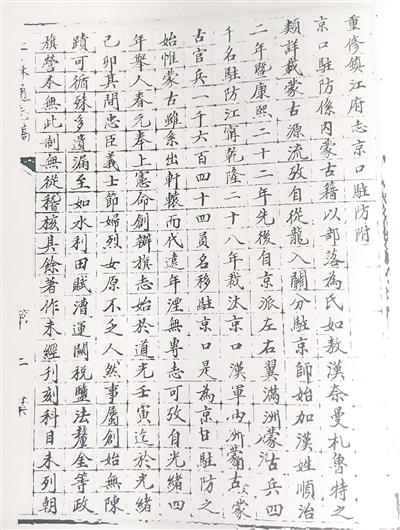 重修鎮江府志京口駐防附
京口駐防係內蒙古籍以部落為氏如敖漢奈曼札魯特之
類詳載蒙古源流攷自從龍入關分駐京師始加漢姓順治
二年暨康熙二十二年先後自京派左右翼滿洲蒙古兵四
千名駐防江甯乾隆二十八年裁汰京口漢軍由洲蒙古蒙
古官兵一千六百四十四員名移駐京口是為京口駐防之
始惟蒙古雖系出軒轅而代遠年湮無專志可攷自光緒四
年舉人春元奉上憲命創辦旗志始於道光壬寅迄於光緒
己卯其間忠臣義士節婦烈女原不乏人然事屬創始無陳
蹟可循殊多遺漏至如水利田賦漕運關稅鹽法釐金等政
旗營本無此制無從稽核其餘著作未經刊刻科目未列朝
二 通志稿 第 二 其